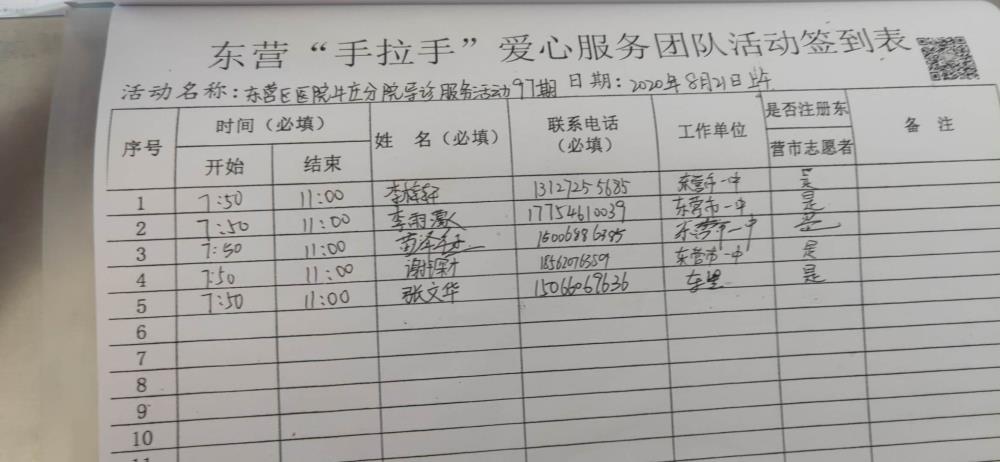 东营“手拉手”爱心服务团队活动签到表
活动名称：东营区医院牛庄分院导诊服务活动97期 日期：2020年8月21日
序号 时间（必填） 姓 名（必填） 联系电话（必填） 工作单位 是否注册东营市志愿者 备 注
开始 结束
1 7:50 11:00 李梓轩 13127255685 东营市一中 是
2 7:50 11:00 李雨 17754610039 东营市一中 是
3 7:50 11:00 15006886385 东营市一中
4 7:50 11:00 谢 18562076359 东营市一中 是
5 7:50 11:00 张文华 15066069636 是
6
7
8
9
10